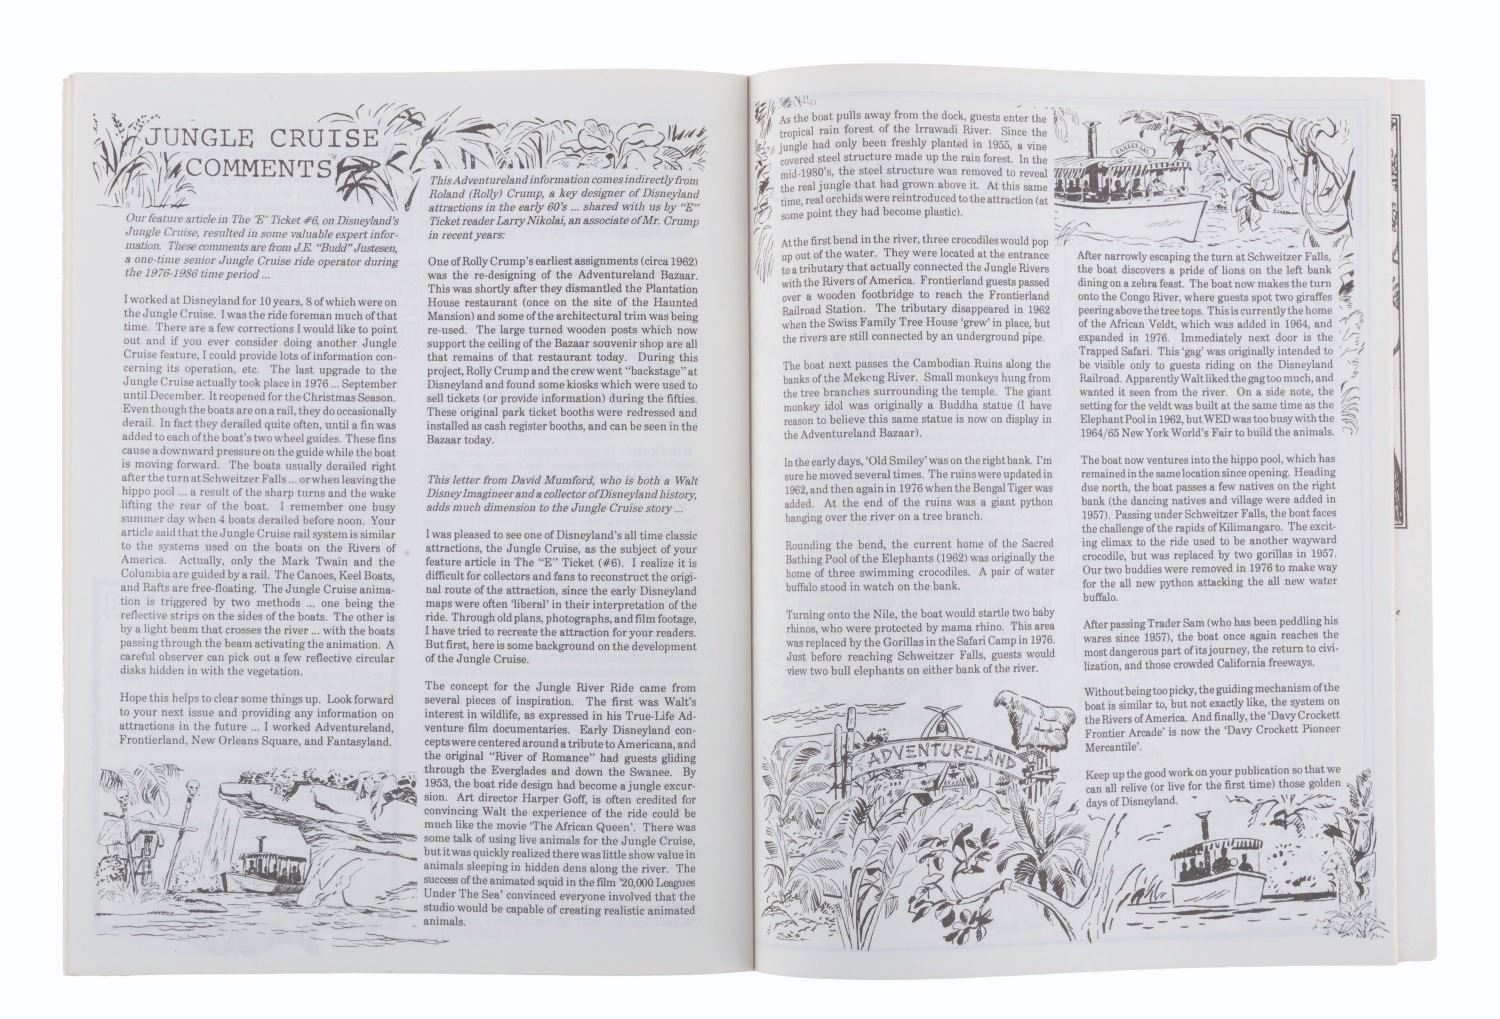 JUNGLE CRUISE
COMMENTS
Our feature article in The "E" Ticket #6, on Disneyland's
Jungle Cruise, resulted in some valuable expert infor-
mation. These comments are from J.E. "Budd" Justesen,
a one-time senior Jungle Cruise ride operator during
the 1976-1986 time period ...
I worked at Disneyland for 10 years, 8 of which were on
the Jungle Cruise. I was the ride foreman much of that
time. There are a few corrections I would like to point
out and if you ever consider doing another Jungle
Cruise feature, I could provide lots of information con-
cerning its operation, etc. The last upgrade to the
Jungle Cruise actually took place in 1976 ... September
until December. It reopened for the Christmas Season.
Even though the boats are on a rail, they do occasionally
derail. In fact they derailed quite often, until a fin was
added to each of the boat's two wheel guides. These fins
cause a downward pressure on the guide while the boat
is moving forward. The boats usually derailed right
after the turn at Schweitzer Falls ... or when leaving the
hippo pool ... a result of the sharp turns and the wake
lifting the rear of the boat. I remember one busy
summer day when 4 boats derailed before noon. Your
article said that the Jungle Cruise rail system is similar
to the systems used on the boats on the Rivers of
America. Actually, only the Mark Twain and the
Columbia are guided by a rail. The Canoes, Keel Boats,
and Rafts are free-floating. The Jungle Cruise anima-
tion is triggered by two methods ... one being the
reflective strips on the sides of the boats. The other is
by a light beam that crosses the river ... with the boats
passing through the beam activating the animation. A
careful observer can pick out a few reflective circular
disks hidden in with the vegetation.
Hope this helps to clear some things up. Look forward
to your next issue and providing any information on
attractions in the future ... I worked Adventureland,
Frontierland, New Orleans Square, and Fantasyland.
This Adventureland information comes indirectly from
Roland (Rolly) Crump, a key designer of Disneyland
attractions in the early 60's ... shared with us by "E"
Ticket reader Larry Nikolai, an associate of Mr. Crump
in recent years:
One of Rolly Crump's earliest assignments (circa 1962)
was the re-designing of the Adventureland Bazaar.
This was shortly after they dismantled the Plantation
House restaurant (once on the site of the Haunted
Mansion) and some of the architectural trim was being
re-used. The large turned wooden posts which now
support the ceiling of the Bazaar souvenir shop are all
that remains of that restaurant today. During this
project, Rolly Crump and the crew went "backstage" at
Disneyland and found some kiosks which were used to
sell tickets (or provide information) during the fifties.
These original park ticket booths were redressed and
installed as cash register booths, and can be seen in the
Bazaar today.
This letter from David Mumford, who is both a Walt
Disney Imagineer and a collector of Disneyland history,
adds much dimension to the Jungle Cruise story ...
I was pleased to see one of Disneyland's all time classic
attractions, the Jungle Cruise, as the subject of your
feature article in The "E" Ticket (#6). I realize it is
difficult for collectors and fans to reconstruct the origi-
nal route of the attraction, since the early Disneyland
maps were often 'liberal' in their interpretation of the
ride. Through old plans, photographs, and film footage,
I have tried to recreate the attraction for your readers.
But first, here is some background on the development
of the Jungle Cruise.
The concept for the Jungle River Ride came from
several pieces of inspiration. The first was Walt's
interest in wildlife, as expressed in his True-Life Ad-
venture film documentaries. Early Disneyland con-
cepts were centered around a tribute to Americana, and
the original "River of Romance" had guests gliding
through the Everglades and down the Swanee. By
1953, the boat ride design had become a jungle excur-
sion. Art director Harper Goff, is often credited for
convincing Walt the experience of the ride could be
much like the movie 'The African Queen'. There was
some talk of using live animals for the Jungle Cruise,
but it was quickly realized there was little show value in
animals sleeping in hidden dens along the river. The
success of the animated squid in the film '20,000 Leagues
Under The Sea' convinced everyone involved that the
studio would be capable of creating realistic animated
animals.
As the boat pulls away from the dock, guests enter the
tropical rain forest of the Irrawadi River. Since the
jungle had only been freshly planted in 1955, a vine
covered steel structure made up the rain forest. In the
mid-1980's, the steel structure was removed to reveal
the real jungle that had grown above it. At this same
time, real orchids were reintroduced to the attraction (at
some point they had become plastic).
At the first bend in the river, three crocodiles would pop
up out of the water. They were located at the entrance
to a tributary that actually connected the Jungle Rivers
with the Rivers of America. Frontierland guests passed
over a wooden footbridge to reach the Frontierland
Railroad Station. The tributary disappeared in 1962
when the Swiss Family Tree House 'grew' in place, but
the rivers are still connected by an underground pipe.
The boat next passes the Cambodian Ruins along the
banks of the Mekeng River. Small monkeys hung from
the tree branches surrounding the temple. The giant
monkey idol was originally a Buddha statue (I have
reason to believe this same statue is now on display in
the Adventureland Bazaar).
In the early days, 'Old Smiley' was on the right bank. I'm
sure he moved several times. The ruins were updated in
1962, and then again in 1976 when the Bengal Tiger was
added. At the end of the ruins was a giant python
hanging over the river on a tree branch.
Rounding the bend, the current home of the Sacred
Bathing Pool of the Elephants (1962) was originally the
home of three swimming crocodiles. A pair of water
buffalo stood in watch on the bank.
Turning onto the Nile, the boat would startle two baby
rhinos, who were protected by mama rhino. This area
was replaced by the Gorillas in the Safari Camp in 1976.
Just before reaching Schweitzer Falls, guests would
view two bull elephants on either bank of the river.
ADVENTURELAND
GANGES GAL
After narrowly escaping the turn at Schweitzer Falls,
the boat discovers a pride of lions on the left bank
dining on a zebra feast. The boat now makes the turn
onto the Congo River, where guests spot two giraffes
peering above the tree tops. This is currently the home
of the African Veldt, which was added in 1964, and
expanded in 1976. Immediately next door is the
Trapped Safari. This 'gag' was originally intended to
be visible only to guests riding on the Disneyland
Railroad. Apparently Walt liked the gag too much, and
wanted it seen from the river. On a side note, the
setting for the veldt was built at the same time as the
Elephant Pool in 1962, but WED was too busy with the
1964/65 New York World's Fair to build the animals.
The boat now ventures into the hippo pool, which has
remained in the same location since opening. Heading
due north, the boat passes a few natives on the right
bank (the dancing natives and village were added in
1957). Passing under Schweitzer Falls, the boat faces
the challenge of the rapids of Kilimangaro. The excit-
ing climax to the ride used to be another wayward
crocodile, but was replaced by two gorillas in 1957.
Our two buddies were removed in 1976 to make way
for the all new python attacking the all new water
buffalo.
After passing Trader Sam (who has been peddling his
wares since 1957), the boat once again reaches the
most dangerous part of its journey, the return to civi-
lization, and those crowded California freeways.
Without being too picky, the guiding mechanism of the
boat is similar to, but not exactly like, the system on
the Rivers of America. And finally, the 'Davy Crockett
Frontier Arcade' is now the 'Davy Crockett Pioneer
Mercantile'.
Keep up the good work on your publication so that we
can all relive (or live for the first time) those golden
days of Disneyland.